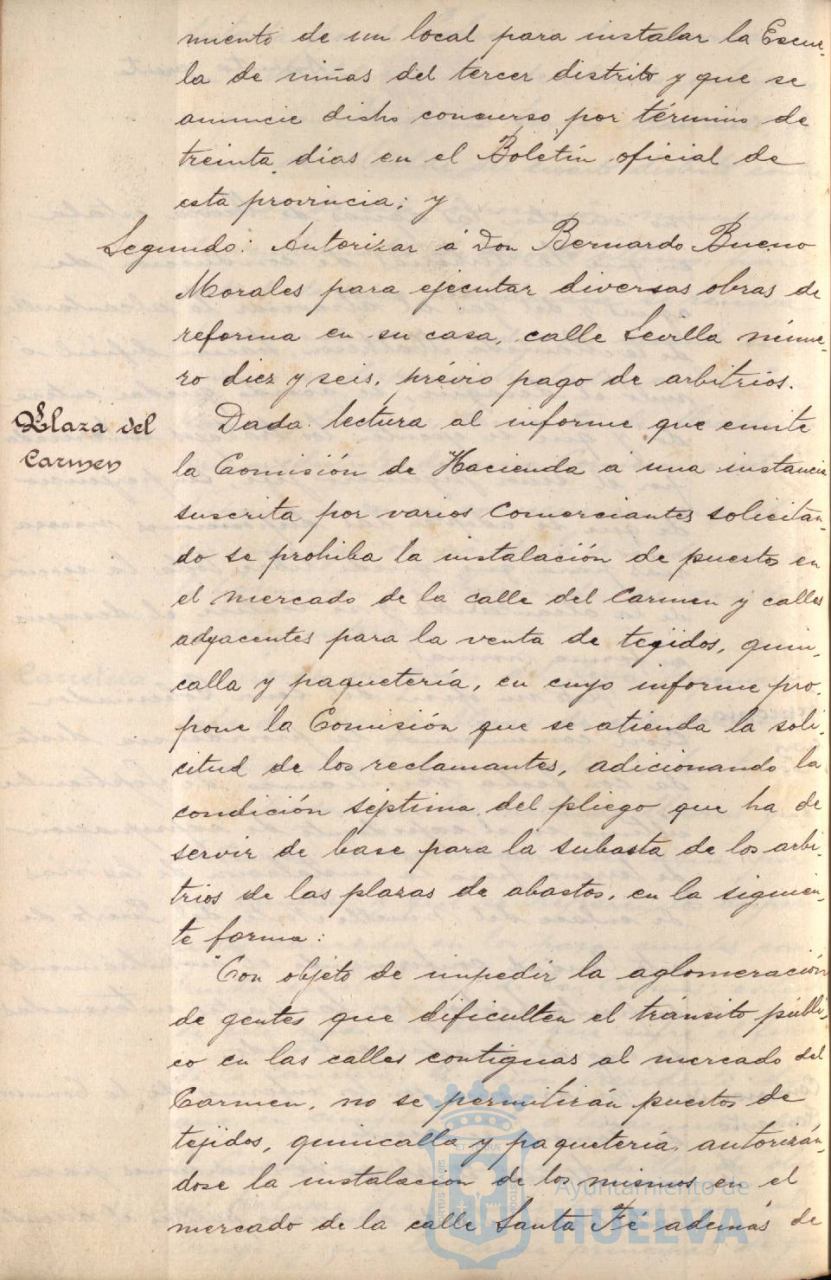 miento de un local para instalar la Escue-
la de niñas del tercer distrito y que se
anuncie dicho concurso por término de
treinta días en el Boletín oficial de
esta provincia; y
Segundo: Autorizar á Don Bernardo Bueno
Morales para ejecutar diversas obras de
reforma en su casa, calle Sevilla núme-
ro diez y seis, prévio pago de arbitrios.
Plaza del
Carmen
Dada lectura al informe que emite
la Comisión de Hacienda á una instancia
suscrita por varios Comerciantes solicitan-
do se prohiba la instalación de puestos en
el mercado de la calle del Carmen y calles
adyacentes para la venta de tejidos, quin-
calla y paquetería, en cuyo informe pro-
pone la Comisión que se atienda la soli-
citud de los reclamantes, adicionando la
condición séptima del pliego que ha de
servir de base para la subasta de los arbi-
trios de las plazas de abastos, en la siguien-
te forma:
"Con objeto de impedir la aglomeración
de gentes que dificulten el tránsito públi-
co en las calles contiguas al mercado del
Carmen, no se permitirán puestos de
tejidos, quincalla y paquetería, autorizán-
dose la instalación de los mismos en el
mercado de la calle Santa Fé además de
Ayuntamiento de
HUELVA